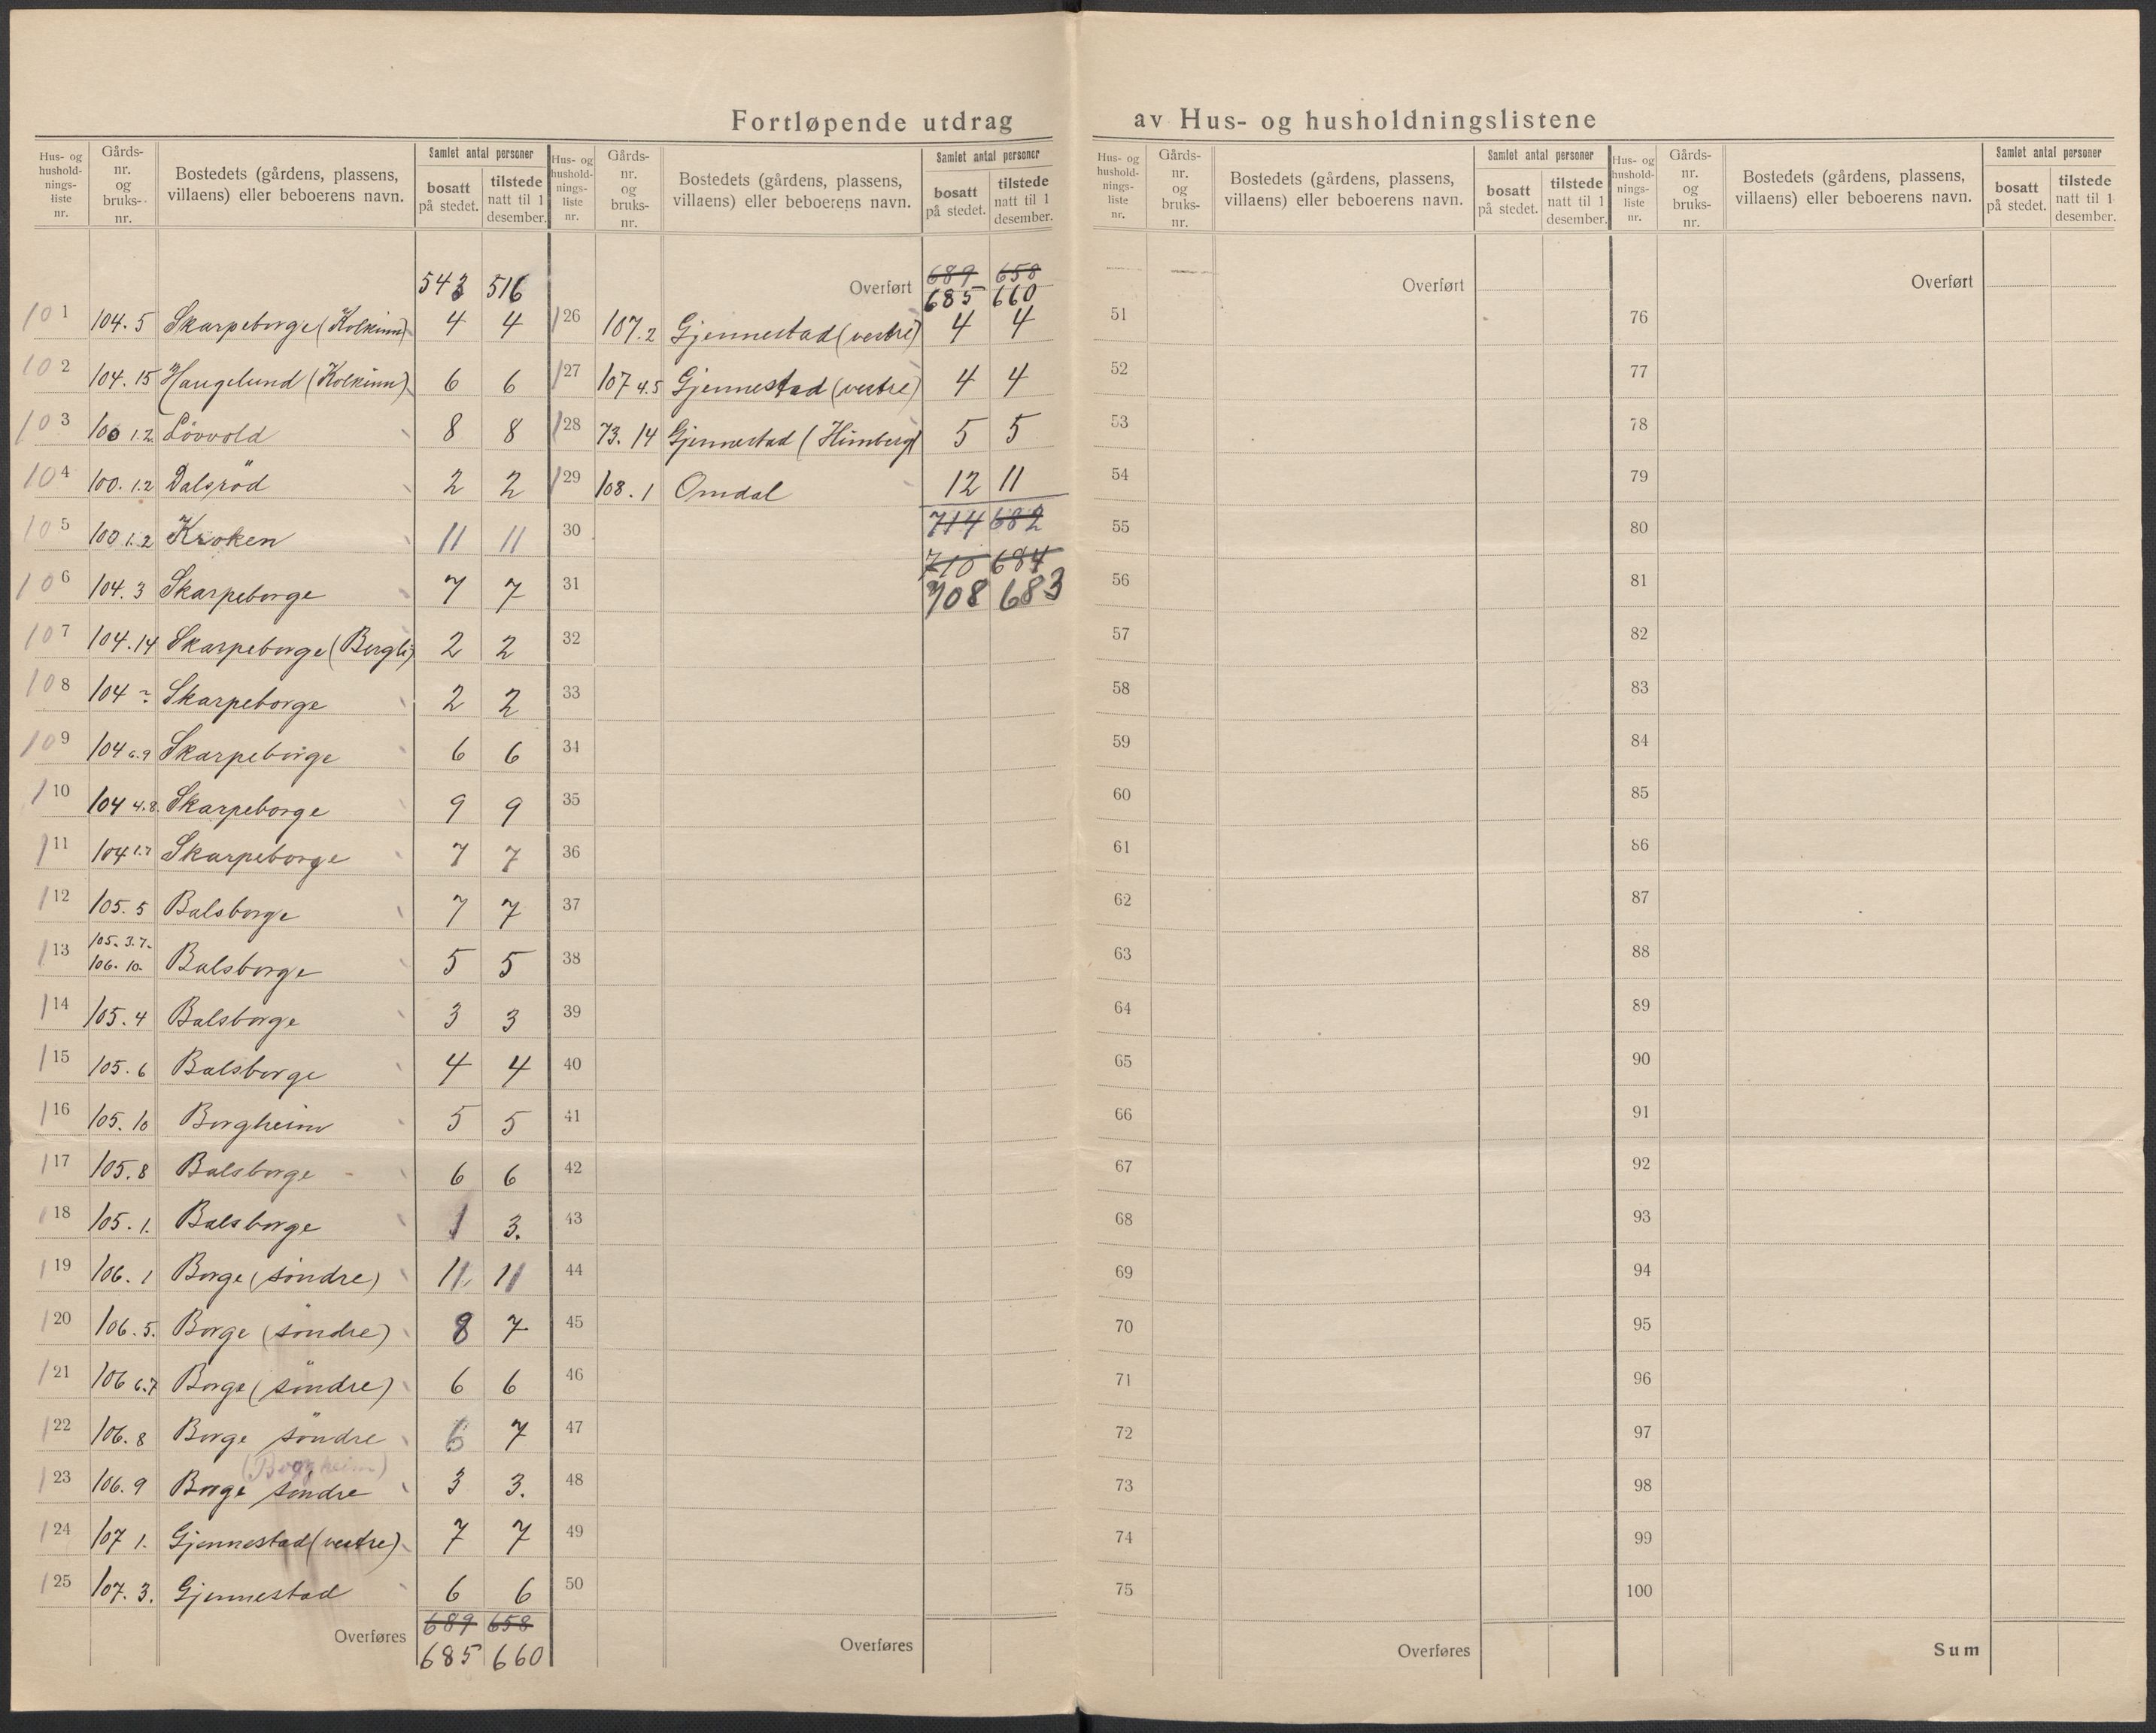 Fortløpende utdrag av Hus- og husholdningslistene
Hus- og hushold-nings-liste nr. | Gårds-nr. og bruks-nr. | Bostedets (gårdens, plassens, villaens) eller beboerens navn. | Samlet antal personer | bosatt på stedet. | tilstede natt til 1 desember.
543 516
101 104.5 Skarpeborge (Kolkinn) 4 4
102 104.15 Haugelund (Kolkinn) 6 6
103 100 1.2. Lövvold 8 8
104 100. 1.2 Dalsröd 2 2
105 100 1.2 Kroken 11 11
106 104.3 Skarpeborge 7 7
107 104.14 Skarpeborge (Bergli) 2 2
108 104 ~ Skarpeborge 2 2
109 104 6.9 Skarpeborge 6 6
110 104 4.8. Skarpeborge 9 9
111 104 1.7 Skarpeborge 7 7
112 105.5 Balsborge 7 7
113 105. 3.7. 106. 10. Balsborge 5 5
114 105.4 Balsborge 3 3
115 105.6 Balsborge 4 4
116 105.10 Borgheim 5 5
117 105.8 Balsborge - 6 6
118 105.1. Balsborge 1 3.
119 106.1 Borge (söndre) 11 11
120 106.5. Borge (söndre) 8 7
121 106 6.7 Borge (söndre) 6 6
122 106.8 Borge söndre 6 7
(Borgheim)
123 106.9 Borge söndre 3 3.
124 107 1. Gjennestad (vestre) 7 7
125 107.3. Gjennestad 6 6
689 658
Overføres 685 660
Hus- og hushold-nings-liste nr. | Gårds-nr. og bruks-nr. | Bostedets (gårdens, plassens, villaens) eller beboerens navn. | Samlet antal personer | bosatt på stedet. | tilstede natt til 1 desember.
Overført 689 658
685 660
126 107.2 Gjennestad (vestre) 4 4
127 107 4.5 Gjennestad (vestre) 4 4
128 73.14 Gjennestad (Himberg) 5 5
129 108.1 Omdal 12 11
30 714 682
710 684
31 708 683
32
33
34
35
36
37
38
39
40
41
42
43
44
45
46
47
48
49
50
Overføres
Hus- og hushold-nings-liste nr. | Gårds-nr. og bruks-nr. | Bostedets (gårdens, plassens, villaens) eller beboerens navn. | Samlet antal personer | bosatt på stedet. | tilstede natt til 1 desember.
Overført
51
52
53
54
55
56
57
58
59
60
61
62
63
64
65
66
67
68
69
70
71
72
73
74
75
Overføres
Hus- og hushold-nings-liste nr. | Gårds-nr. og bruks-nr. | Bostedets (gårdens, plassens, villaens) eller beboerens navn. | Samlet antal personer | bosatt på stedet. | tilstede natt til 1 desember.
Overført
76
77
78
79
80
81
82
83
84
85
86
87
88
89
90
91
92
93
94
95
96
97
98
99
100
Sum